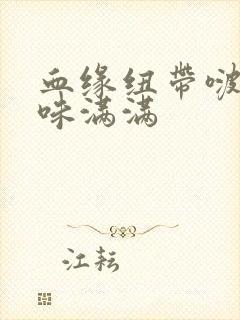 血缘纽带啵
咪满满
江耘